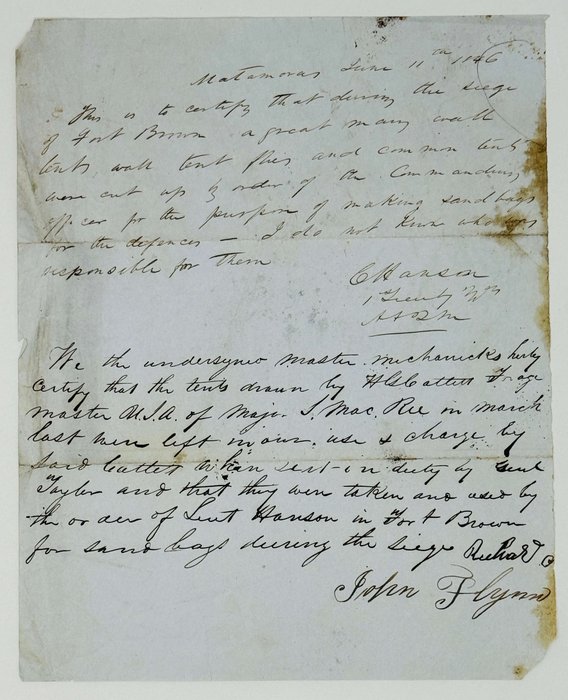 Matamoras June 11th 1846
This is to certify that during the siege
of Fort Brown a great many wall
tents, wall tent flies and common tents
were cut up by order of the Commanding
officer for the purpose of making sandbags
for the defences — I do not know who was
responsible for them
C Hanson
1 Lieut 7th
AAQM
We the undersyned master mechanicks herby
certify that the tents drawn by H G Cattett Forage
master U.S.A. of Major. S. Mac. Ree in march
last were left in our. use & charge by
said Cattett when sent on duty by Genl
Taylor and that they were taken and used by
the order of Leut Hanson in Fort Brown
for sand bags dureing the siege Richard C
John Flynn